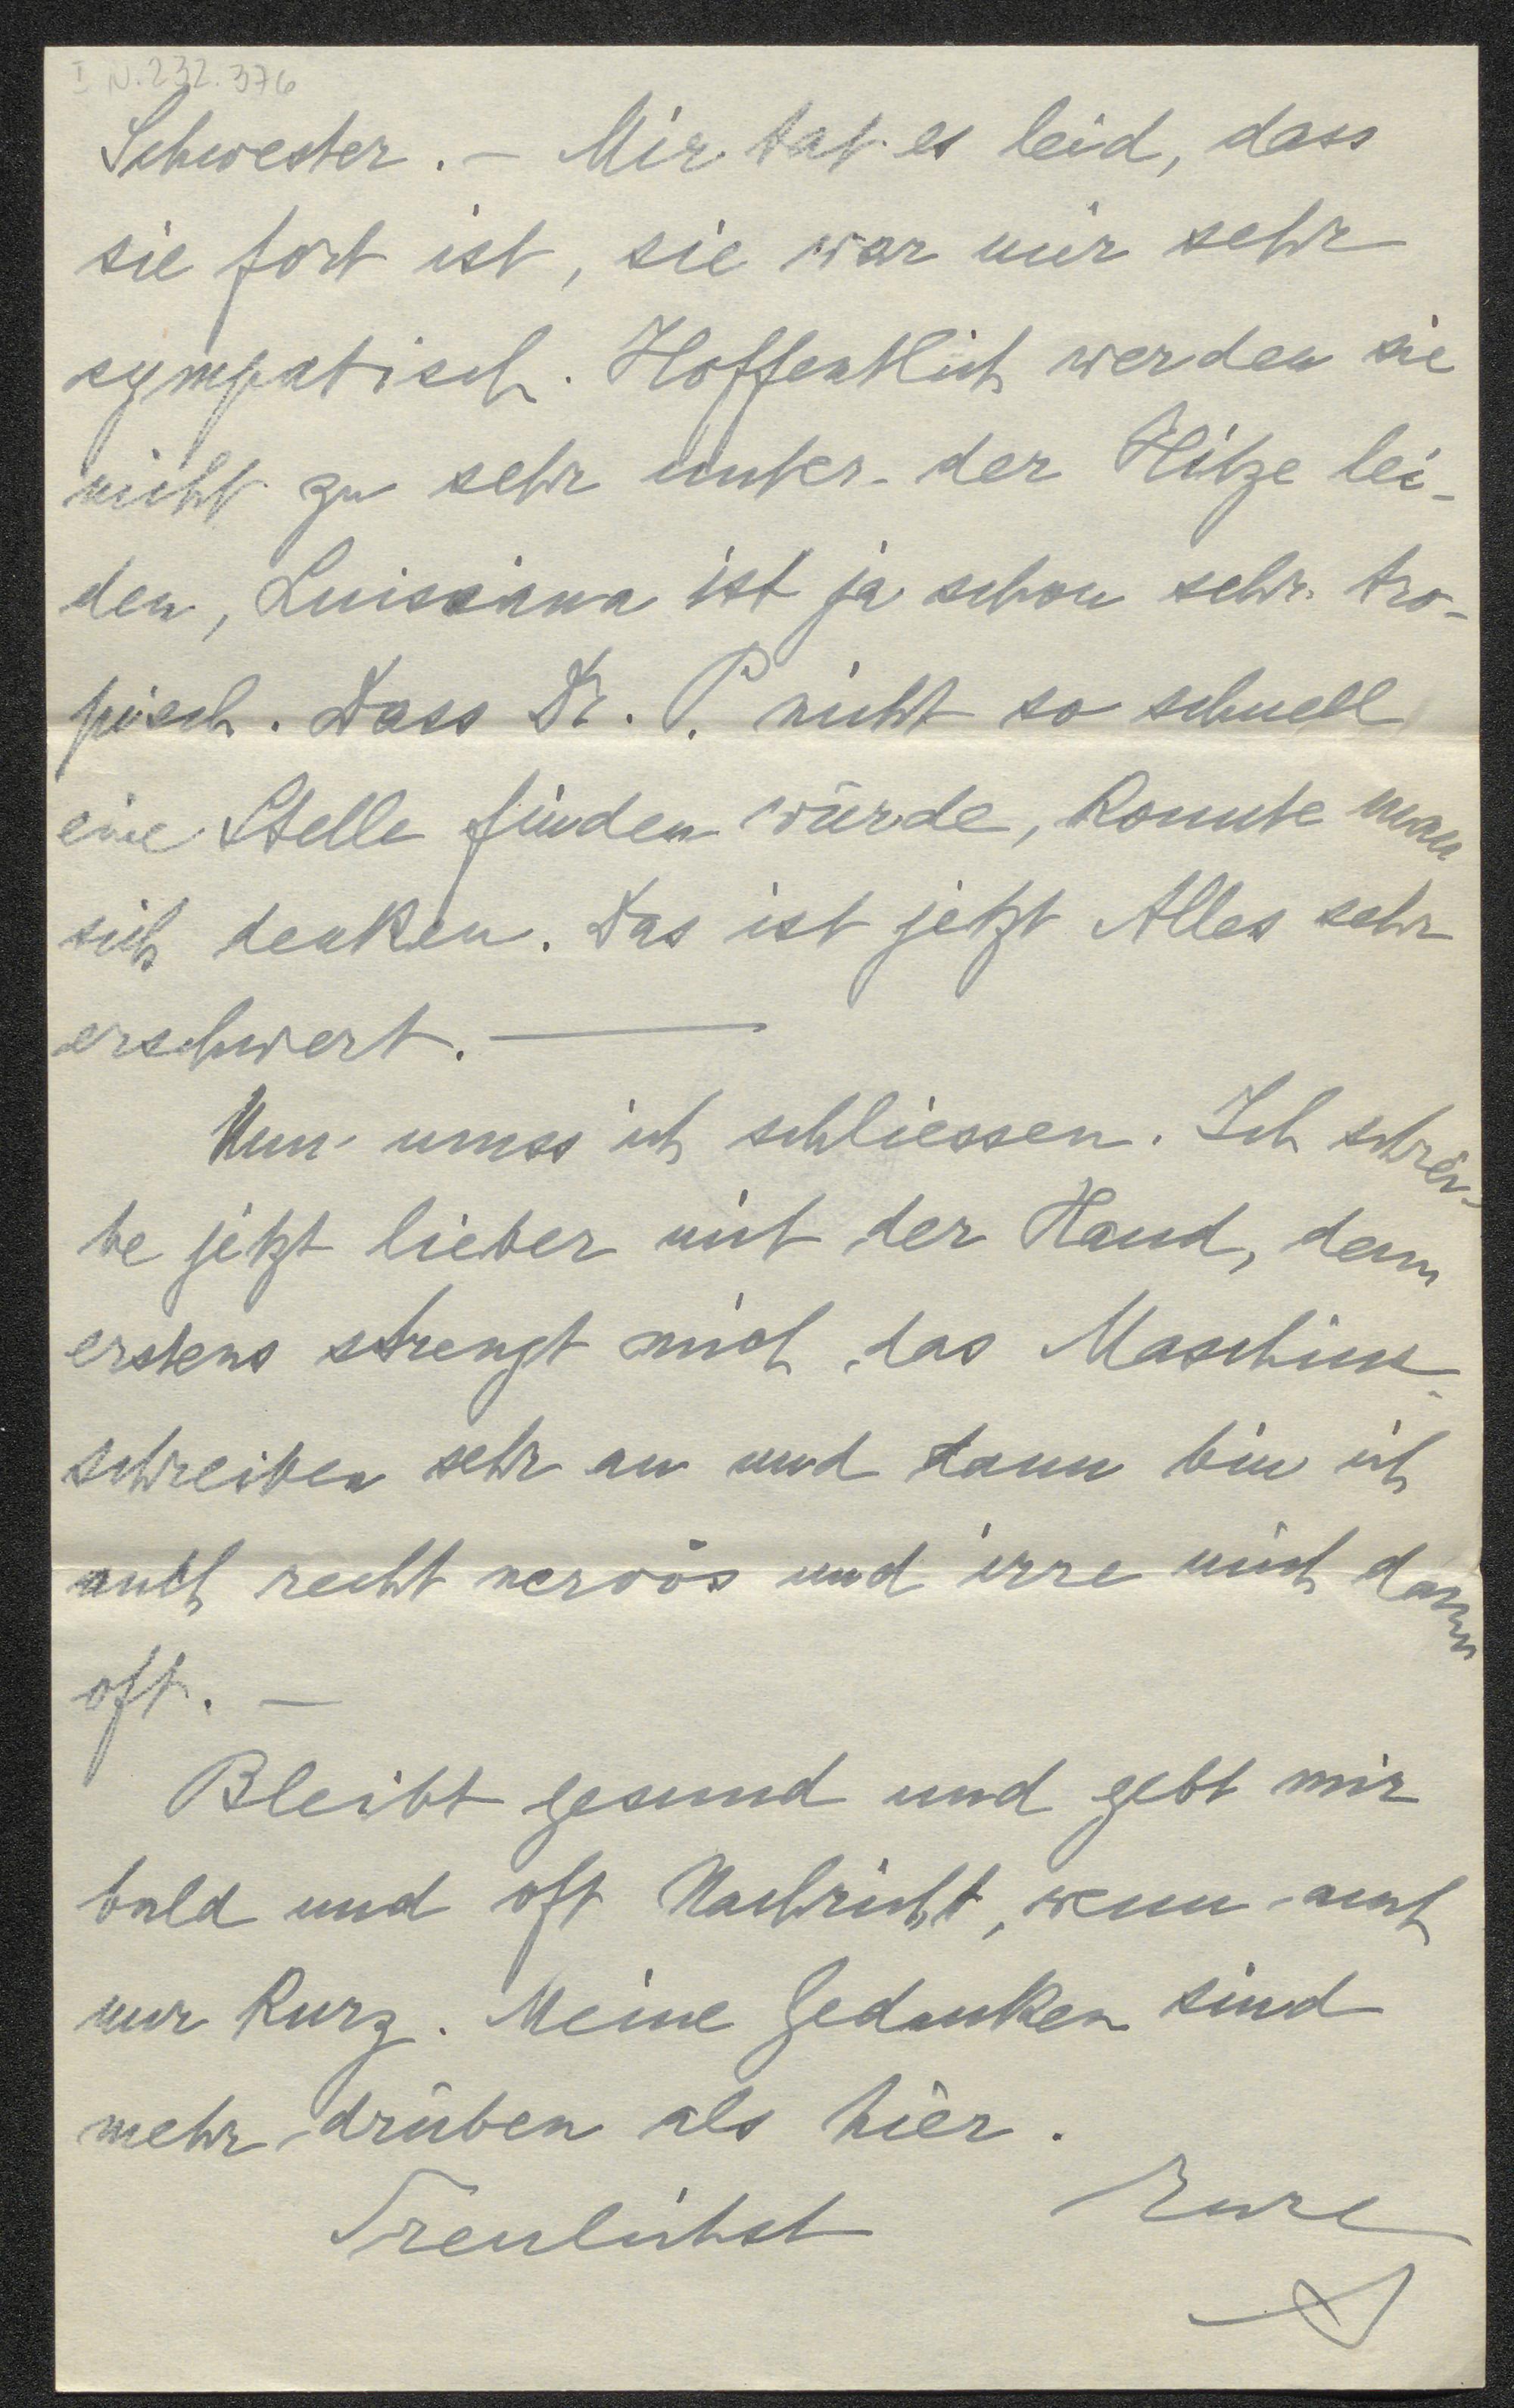 I N. 232.376
Schwester. – Mir tat es leid, dass
sie fort ist, sie war mir sehr
sympatisch. Hoffentlich werden sie
nicht zu sehr unter der Hitze lei-
den, Luisiana ist ja schon sehr tro-
pisch. Dass Dr. P. nicht so schnell
eine Stelle finden würde, konnte man
sich denken. Das ist jetzt Alles sehr
erschwert. —
Nun muss ich schliessen. Ich schrei-
be jetzt lieber mit der Hand, denn
erstens strengt mich das Maschin-
schreiben sehr an und dann bin ich
auch recht nervös und irre mich dann
oft. –
Bleibt gesund und gebt mir
bald und oft Nachricht, wenn auch
nur kurz. Meine Gedanken sind
mehr drüben als hier.
Treulichst Eure